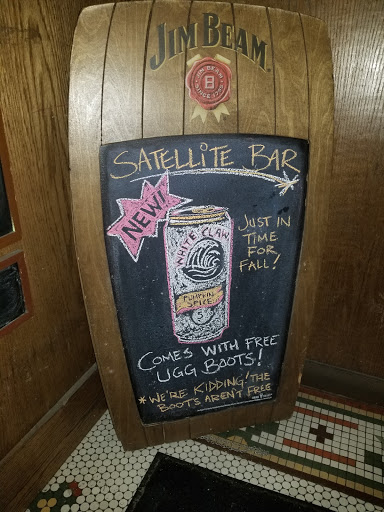 JIM BEAM
SATELLITE BAR
NEW!
WHITE CLAW
PUMPKIN
SPICE
5
JUST IN
TIME
FOR
FALL!
COMES WITH FREE
UGG BOOTS!
*WE'RE KIDDING! THE
BOOTS AREN'T FREE